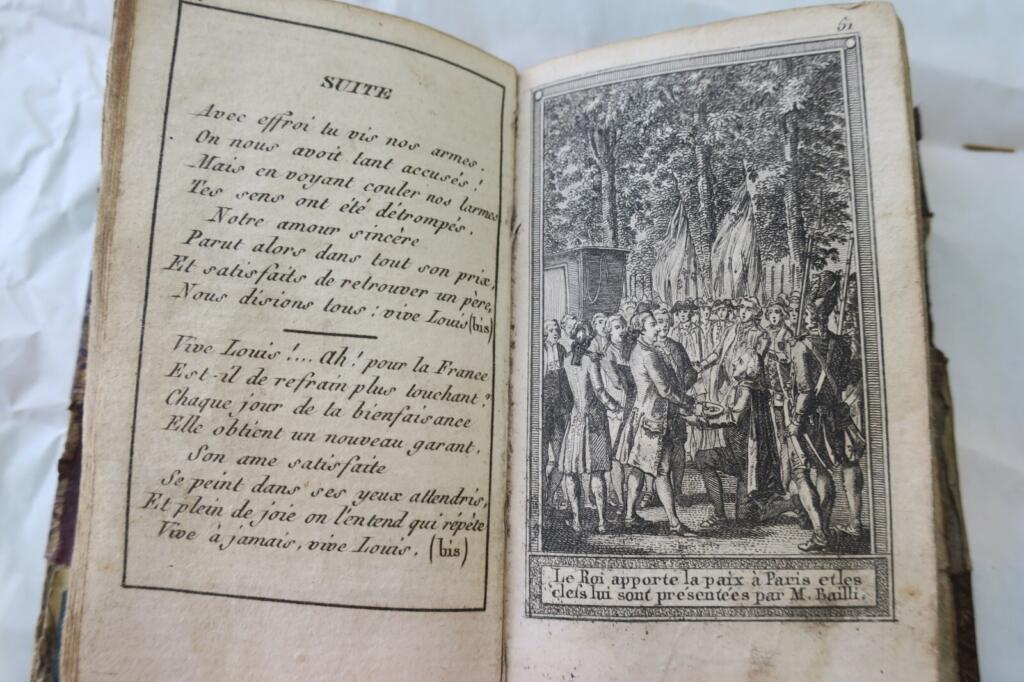 SUITE
Avec effroi tu vis nos armes.
On nous avoit tant accusés !
Mais en voyant couler nos larmes
Tes sens ont été détrompés.
Notre amour sincère
Parut alors dans tout son prix,
Et satisfaits de retrouver un père,
Nous disions tous : vive Louis (bis)
Vive Louis !... ah ! pour la France
Est-il de refrain plus touchant ?
Chaque jour de ta bienfaisance
Elle obtient un nouveau garant.
Son ame satisfaite
Se peint dans ses yeux attendris,
Et plein de joie on l'entend qui répéte
Vive à jamais, vive Louis. (bis)
51
Le Roi apporte la paix à Paris et les
clefs lui sont presentées par M. Bailli.